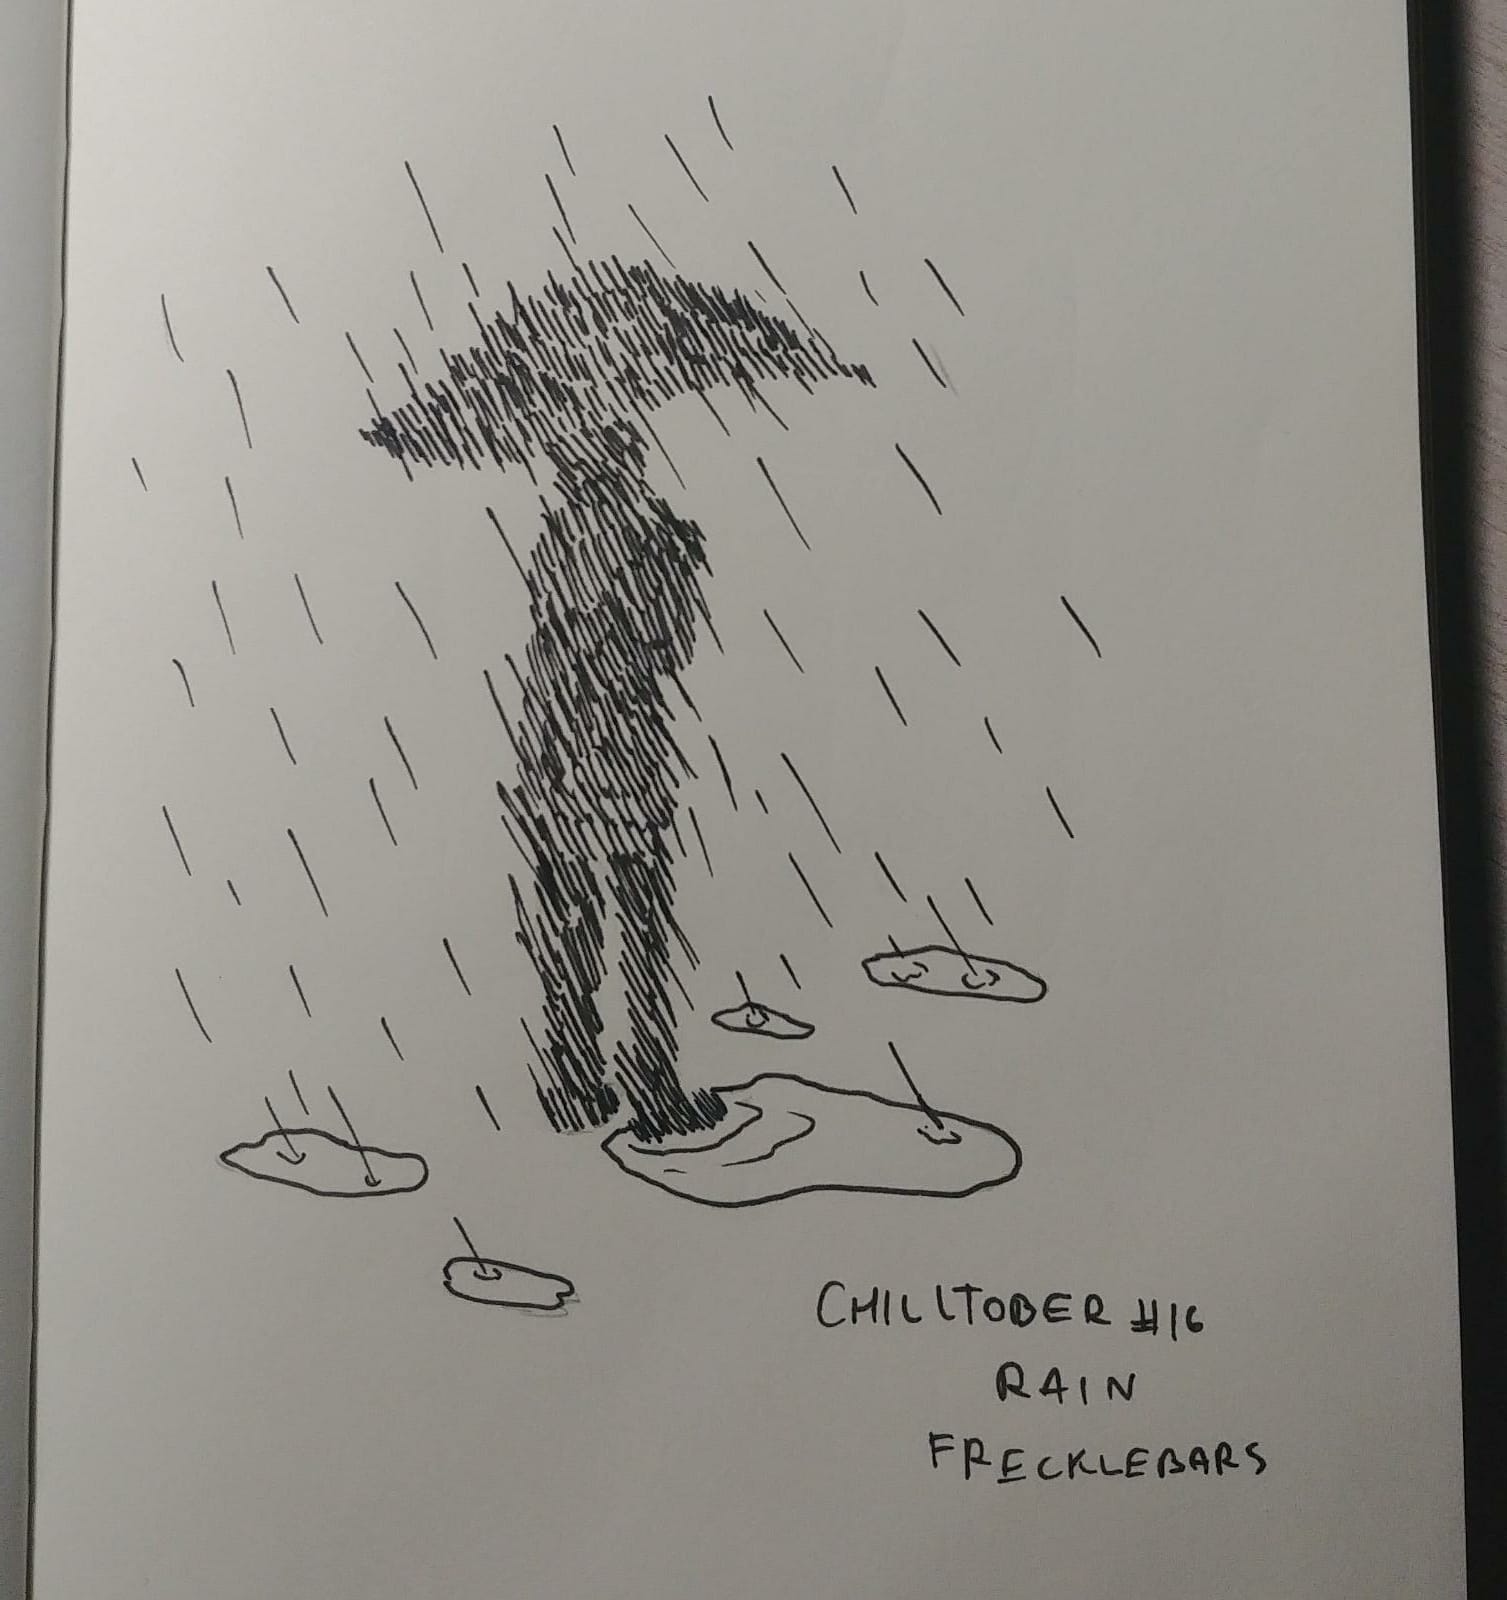 CHILLTOBER #16
RAIN
FRECKLEBARS